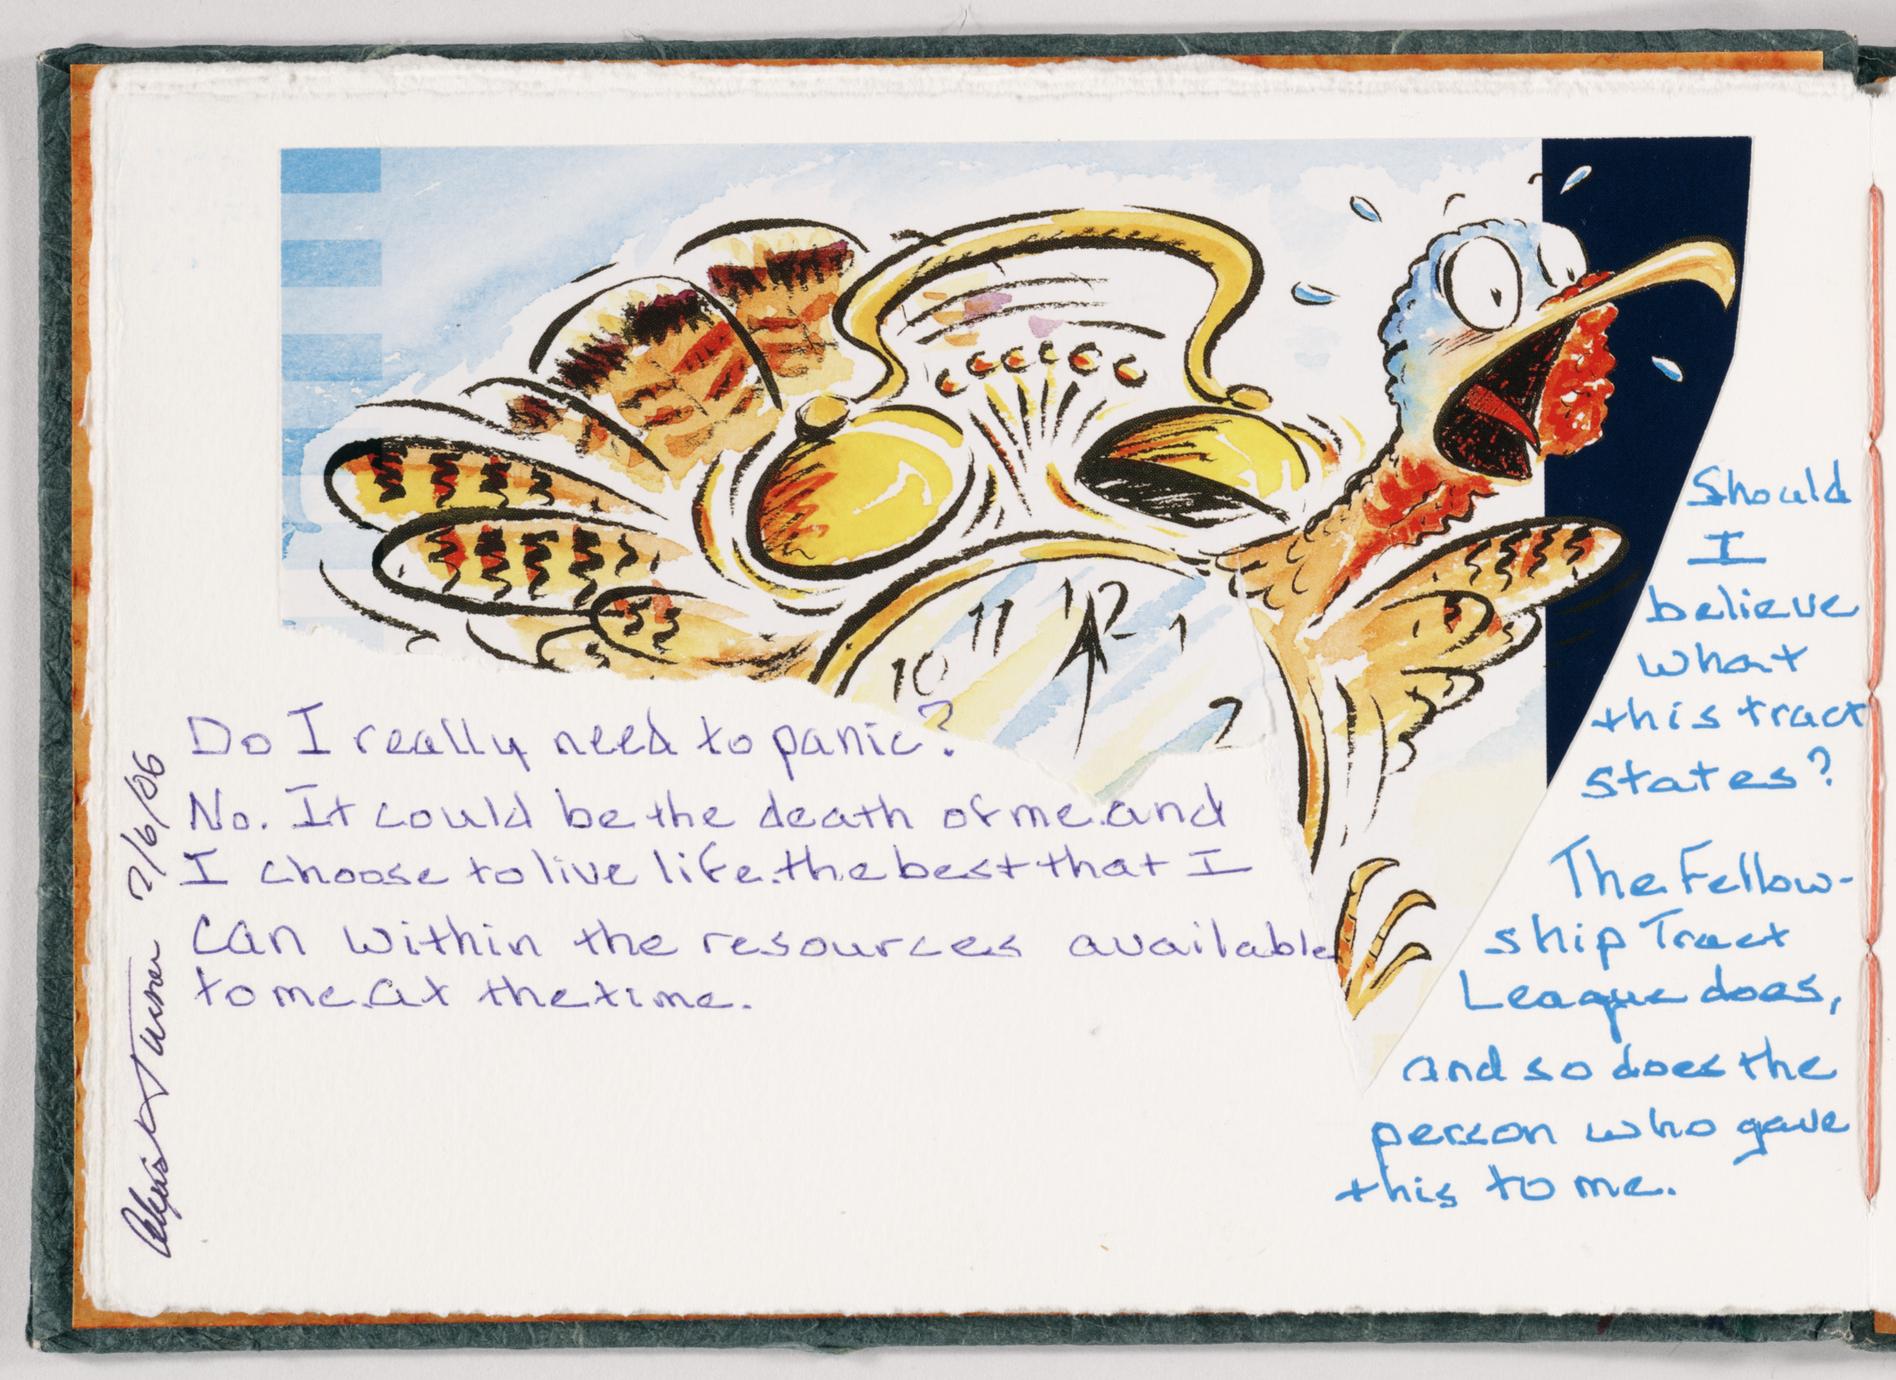 11 12 1
10
2
Do I really need to panic?
No. It could be the death of me and
I choose to live life the best that I
can within the resources available
to me at the time.
Should
I
believe
what
this tract
states?
The Fellow-
ship Tract
League does,
and so does the
person who gave
this to me.
Turner 2/6/06